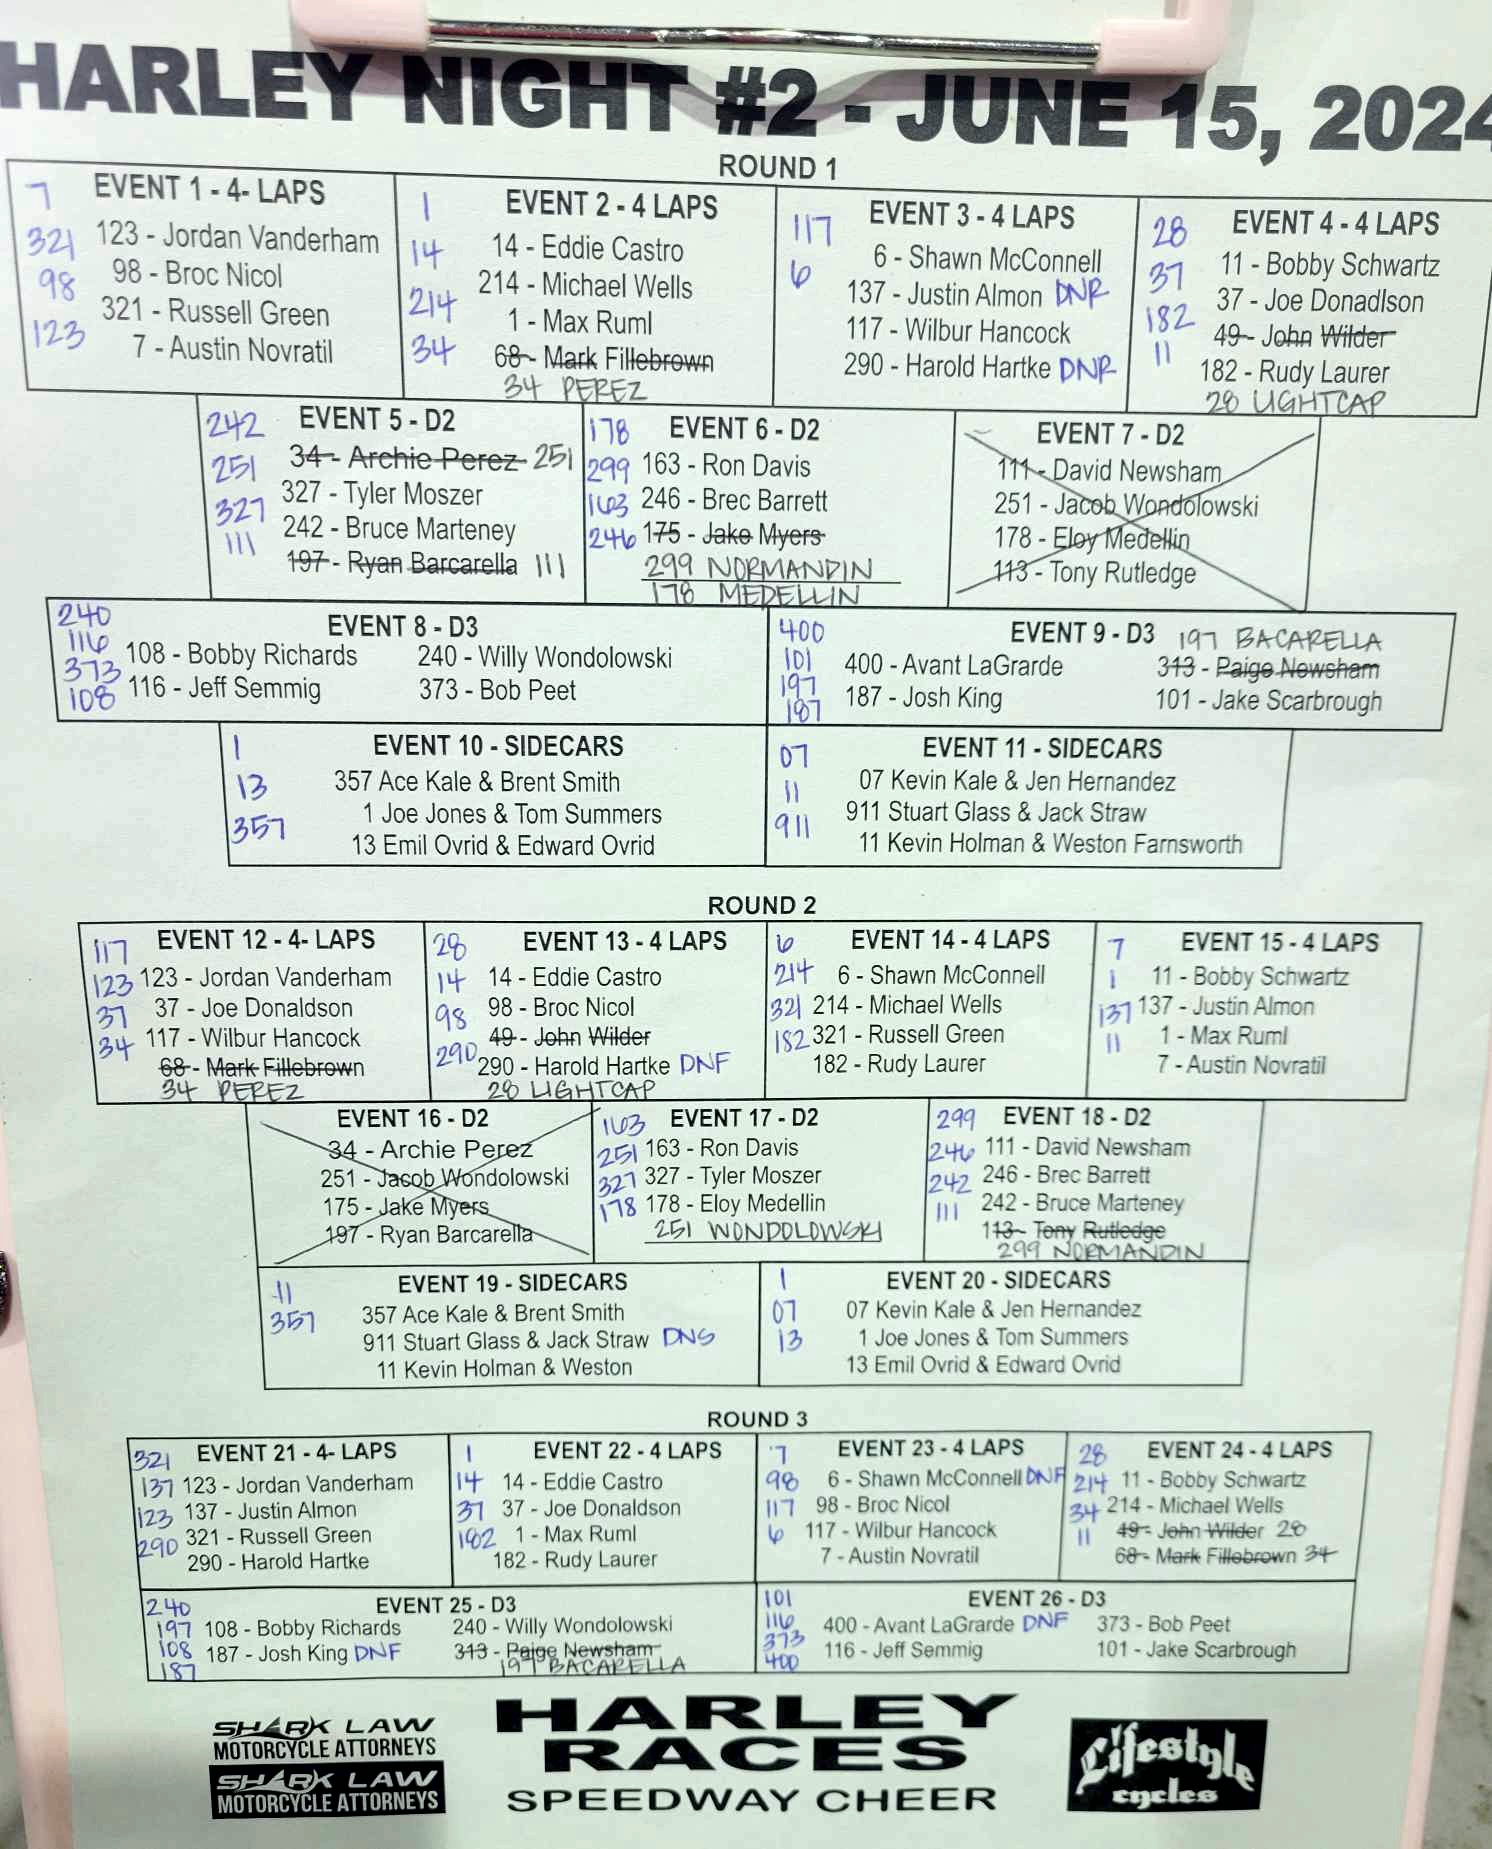 HARLEY NIGHT #2 - JUNE 15, 2024
ROUND 1
EVENT 1 - 4- LAPS
7
321
98
123
123 - Jordan Vanderham
98 - Broc Nicol
321 - Russell Green
7 - Austin Novratil
EVENT 2 - 4 LAPS
1
14
214
34
14 - Eddie Castro
214 - Michael Wells
1 - Max Ruml
68 - Mark Fillebrown
34 PEREZ
EVENT 3 - 4 LAPS
117
6
6 - Shawn McConnell
137 - Justin Almon DNR
117 - Wilbur Hancock
290 - Harold Hartke DNR
EVENT 4 - 4 LAPS
28
37
182
11
11 - Bobby Schwartz
37 - Joe Donadlson
49 - John Wilder
182 - Rudy Laurer
28 LIGHTCAP
EVENT 5 - D2
242
251
327
111
34 - Archie Perez 251
327 - Tyler Moszer
242 - Bruce Marteney
197 - Ryan Barcarella 111
EVENT 6 - D2
178
299
163
246
163 - Ron Davis
246 - Brec Barrett
175 - Jake Myers
299 NORMANDIN
178 MEDELLIN
EVENT 7 - D2
111 - David Newsham
251 - Jacob Wondolowski
178 - Eloy Medellin
113 - Tony Rutledge
EVENT 8 - D3
240
116
373
108
108 - Bobby Richards 240 - Willy Wondolowski
116 - Jeff Semmig 373 - Bob Peet
EVENT 9 - D3 197 BACARELLA
400
101
197
187
400 - Avant LaGrarde 313 - Paige Newsham
187 - Josh King 101 - Jake Scarbrough
EVENT 10 - SIDECARS
1
13
357
357 Ace Kale & Brent Smith
1 Joe Jones & Tom Summers
13 Emil Ovrid & Edward Ovrid
EVENT 11 - SIDECARS
07
11
911
07 Kevin Kale & Jen Hernandez
911 Stuart Glass & Jack Straw
11 Kevin Holman & Weston Farnsworth
ROUND 2
EVENT 12 - 4- LAPS
117
123
37
34
123 - Jordan Vanderham
37 - Joe Donaldson
117 - Wilbur Hancock
68 - Mark Fillebrown
34 PEREZ
EVENT 13 - 4 LAPS
28
14
98
290
14 - Eddie Castro
98 - Broc Nicol
49 - John Wilder
290 - Harold Hartke DNF
28 LIGHTCAP
EVENT 14 - 4 LAPS
6
214
321
182
6 - Shawn McConnell
214 - Michael Wells
321 - Russell Green
182 - Rudy Laurer
EVENT 15 - 4 LAPS
7
1
137
11
11 - Bobby Schwartz
137 - Justin Almon
1 - Max Ruml
7 - Austin Novratil
EVENT 16 - D2
34 - Archie Perez
251 - Jacob Wondolowski
175 - Jake Myers
197 - Ryan Barcarella
EVENT 17 - D2
163
251
327
178
163 - Ron Davis
327 - Tyler Moszer
178 - Eloy Medellin
251 WONDOLOWSKI
EVENT 18 - D2
299
246
242
111
111 - David Newsham
246 - Brec Barrett
242 - Bruce Marteney
113 - Tony Rutledge
299 NORMANDIN
EVENT 19 - SIDECARS
11
357
357 Ace Kale & Brent Smith
911 Stuart Glass & Jack Straw DNS
11 Kevin Holman & Weston
EVENT 20 - SIDECARS
1
07
13
07 Kevin Kale & Jen Hernandez
1 Joe Jones & Tom Summers
13 Emil Ovrid & Edward Ovrid
ROUND 3
EVENT 21 - 4- LAPS
321
137
123
290
123 - Jordan Vanderham
137 - Justin Almon
321 - Russell Green
290 - Harold Hartke
EVENT 22 - 4 LAPS
1
14
37
182
14 - Eddie Castro
37 - Joe Donaldson
1 - Max Ruml
182 - Rudy Laurer
EVENT 23 - 4 LAPS
7
98
117
6
6 - Shawn McConnell DNF
98 - Broc Nicol
117 - Wilbur Hancock
7 - Austin Novratil
EVENT 24 - 4 LAPS
28
214
34
11
11 - Bobby Schwartz
214 - Michael Wells
49 - John Wilder 28
68 - Mark Fillebrown 34
EVENT 25 - D3
240
197
108
187
108 - Bobby Richards 240 - Willy Wondolowski
187 - Josh King DNF 313 - Paige Newsham
197 BACARELLA
EVENT 26 - D3
101
116
373
400
400 - Avant LaGrarde DNF 373 - Bob Peet
116 - Jeff Semmig 101 - Jake Scarbrough
SHARK LAW
MOTORCYCLE ATTORNEYS
SHARK LAW
MOTORCYCLE ATTORNEYS
HARLEY
RACES
SPEEDWAY CHEER
Lifestyle
cycles